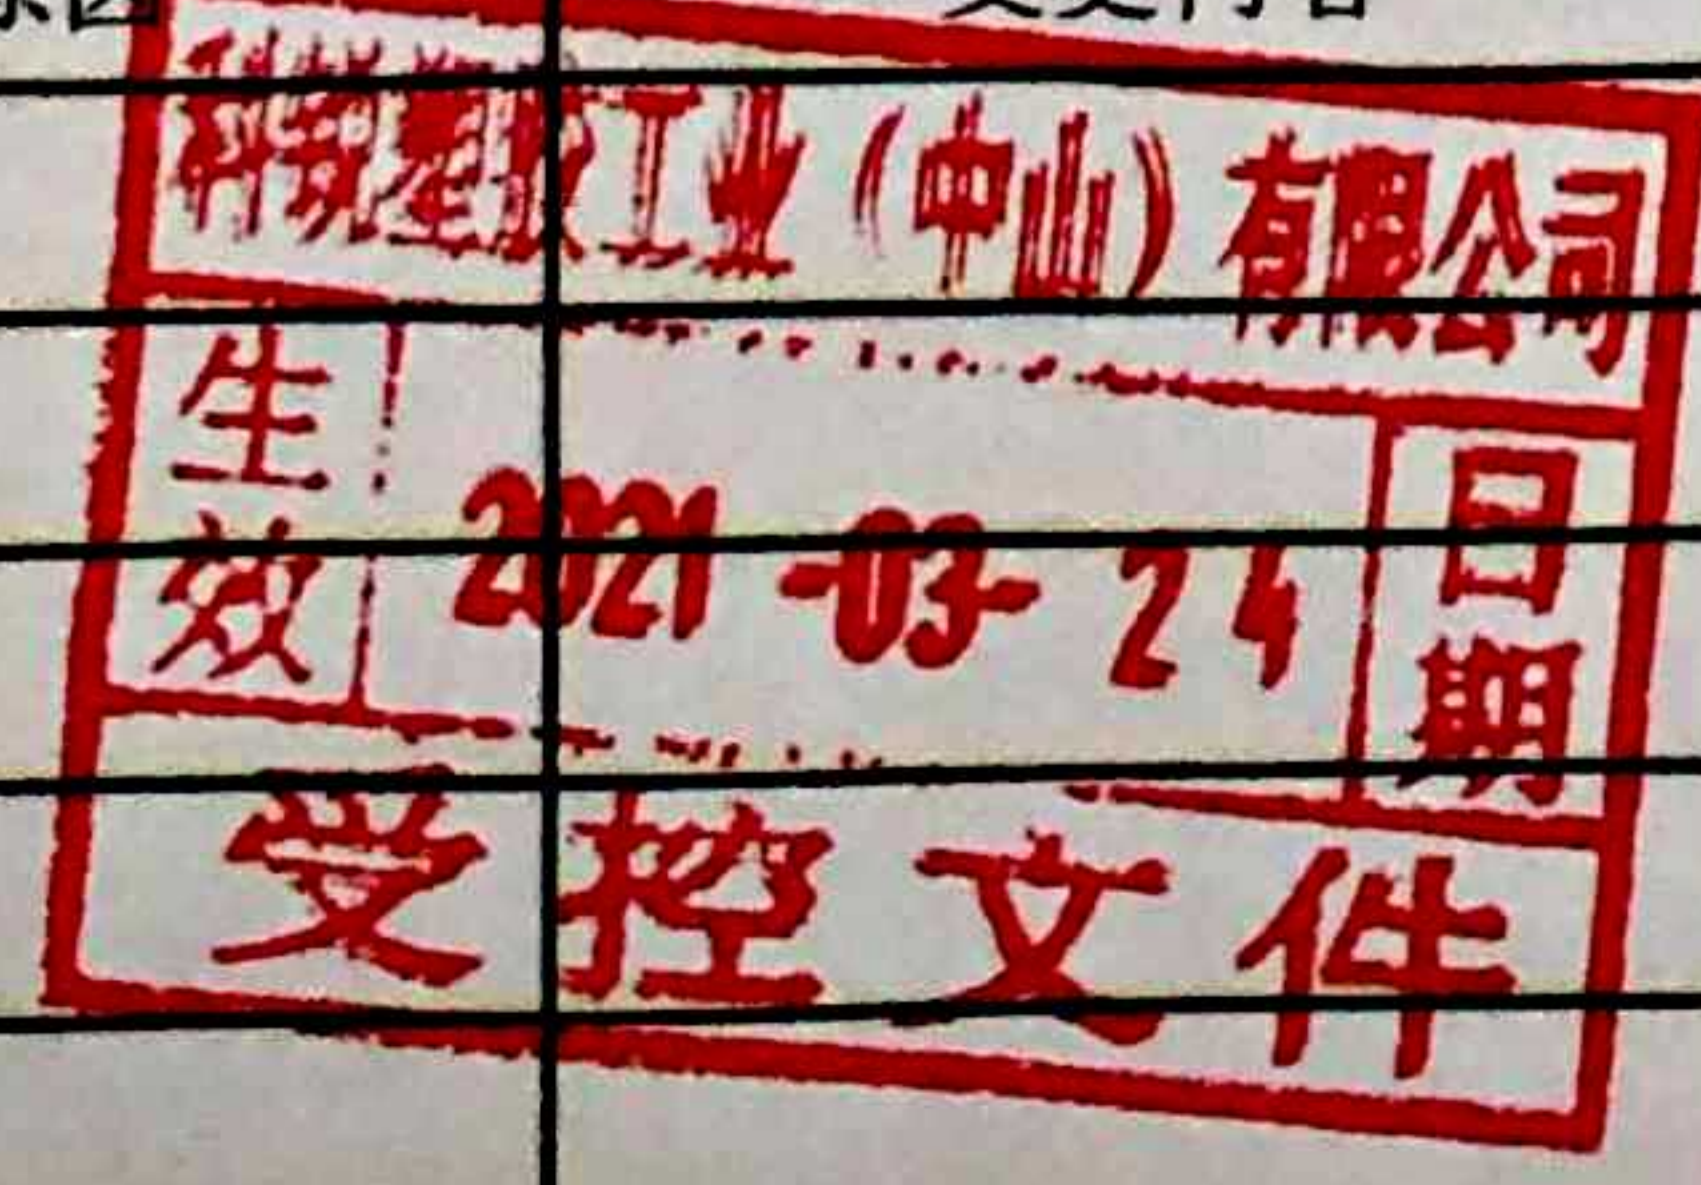 原因 变更内容
工业（中山）有限公司
生效 2021-03-24 日期
受控文件